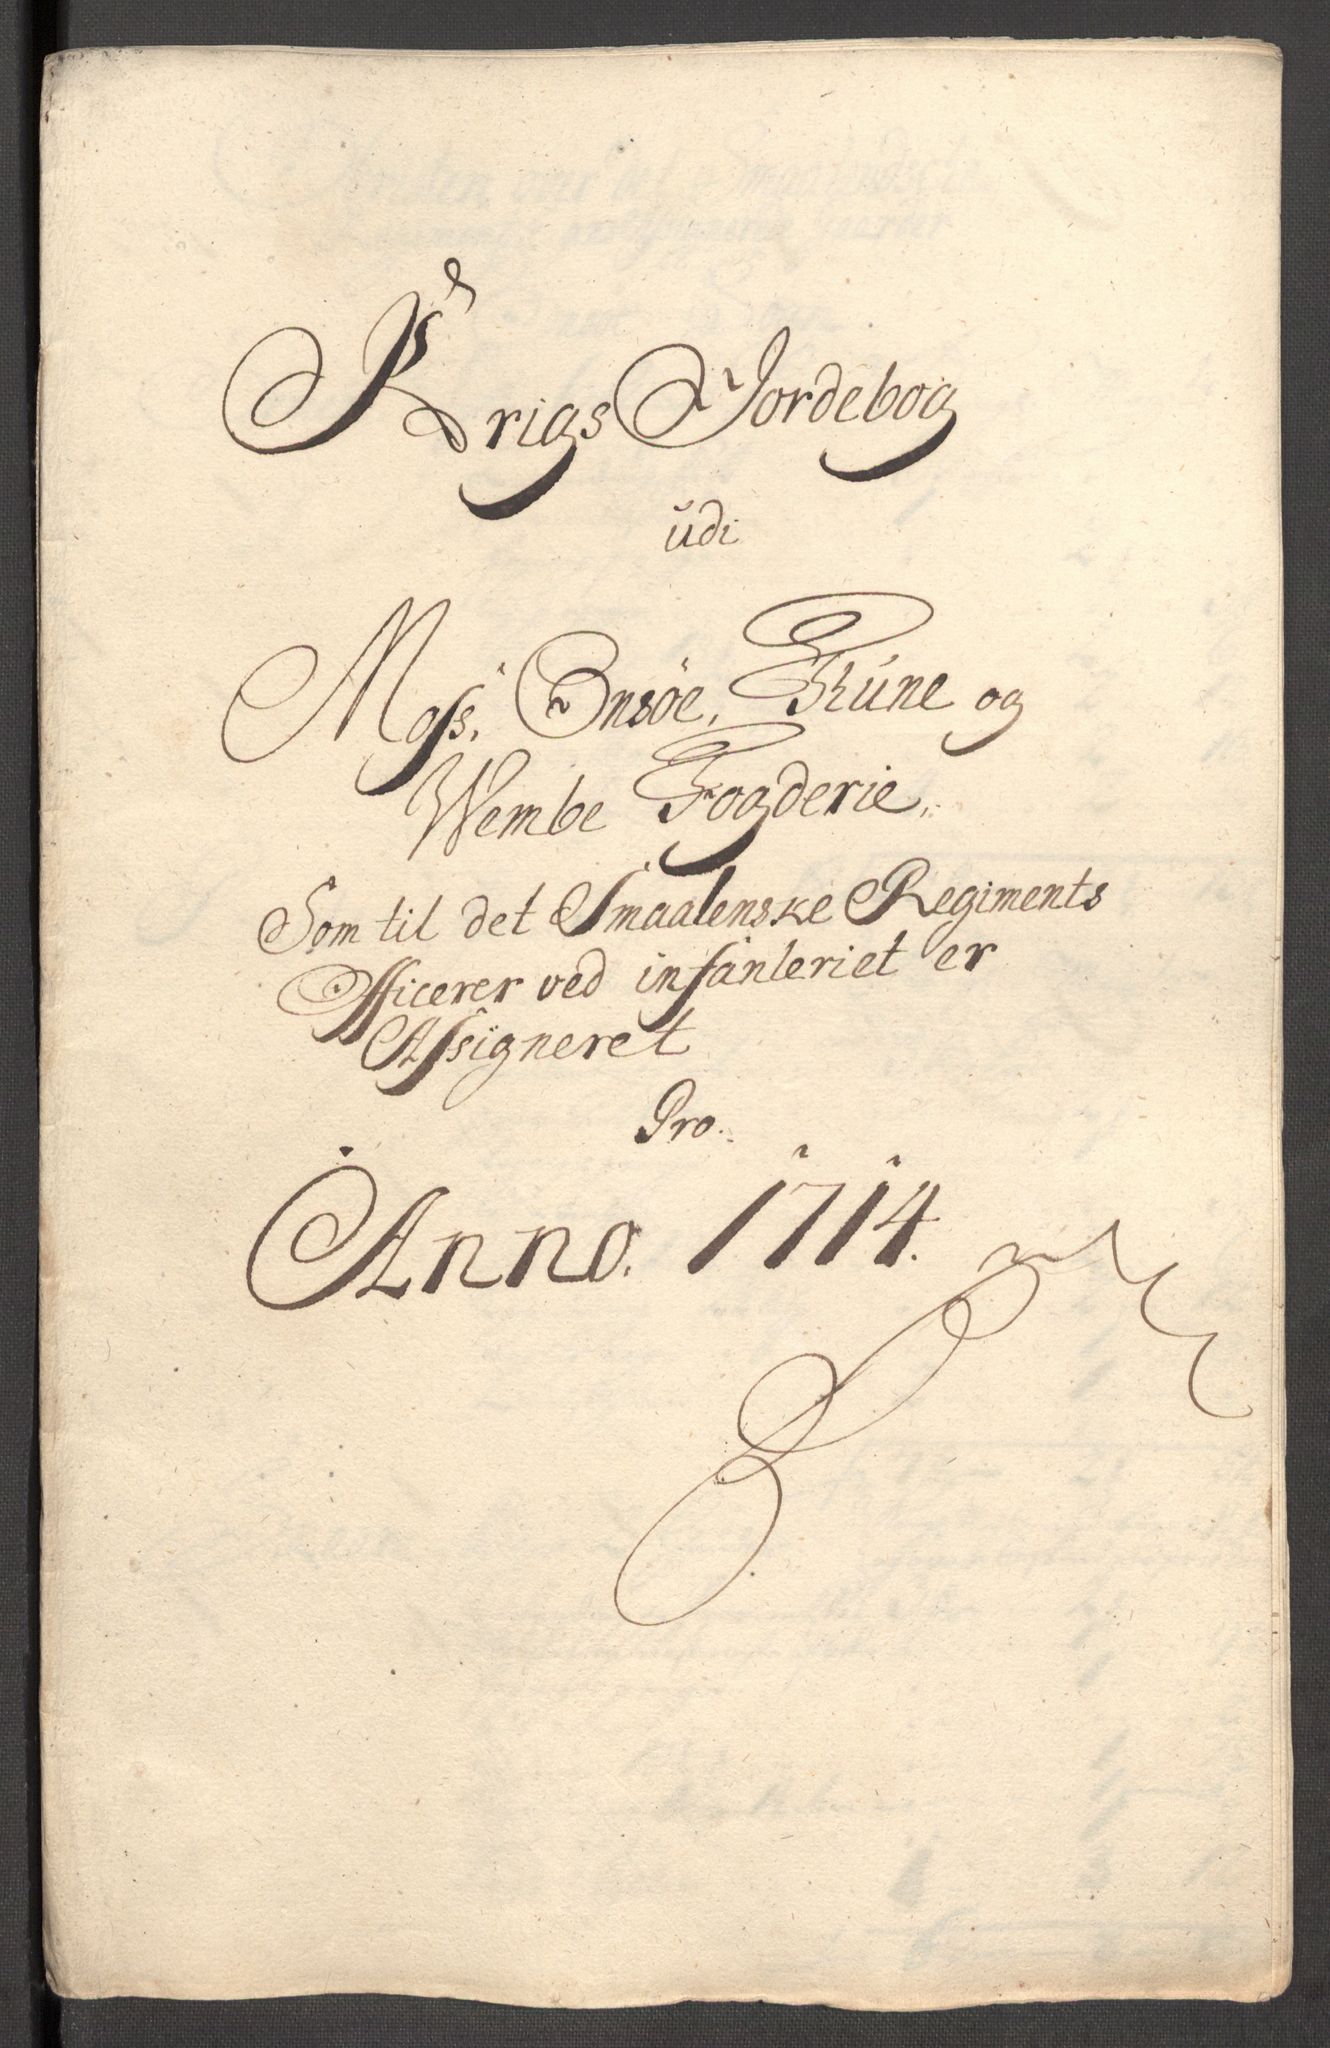 Krigs Jordebog
udi
Moss, Onsöe, Thúne og
Wembe Fogderie,
Som til det Smaalenske Regiments
Officerer ved infanteriet er
Assigneret
Pro.
Anno. 1714.